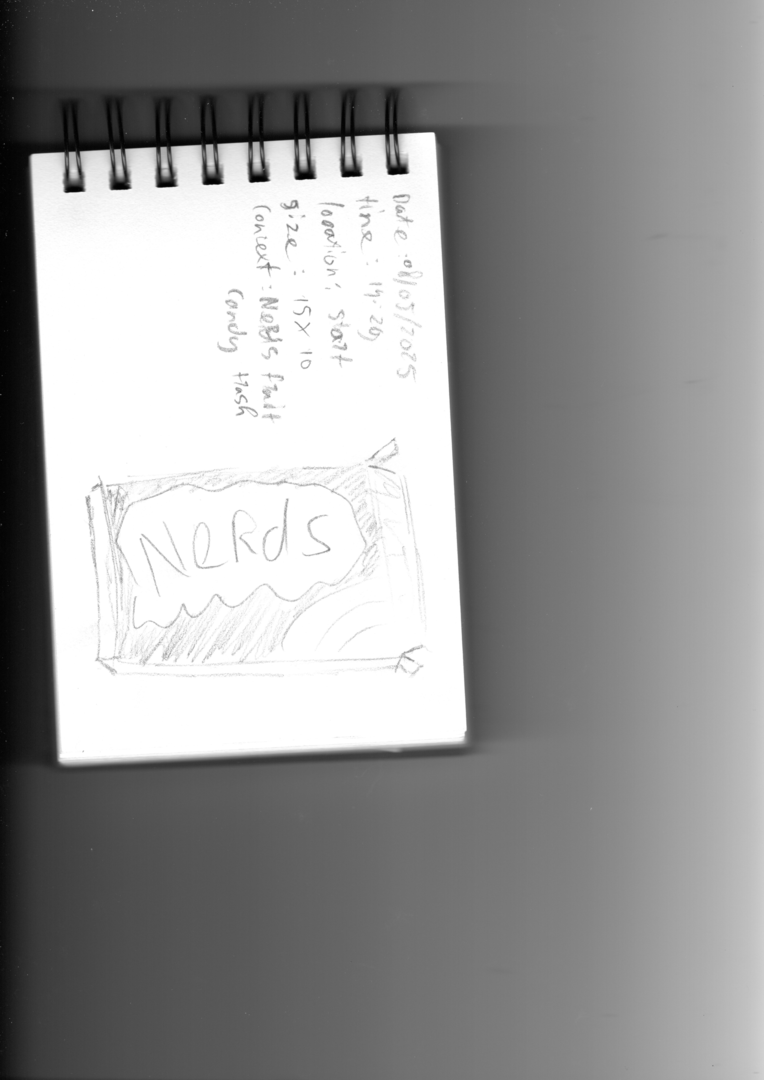 Date: 08/05/2025
time: 14:20
location: start
size: 15 x 10
Context: Nerds fruit
Candy trash
Nerds